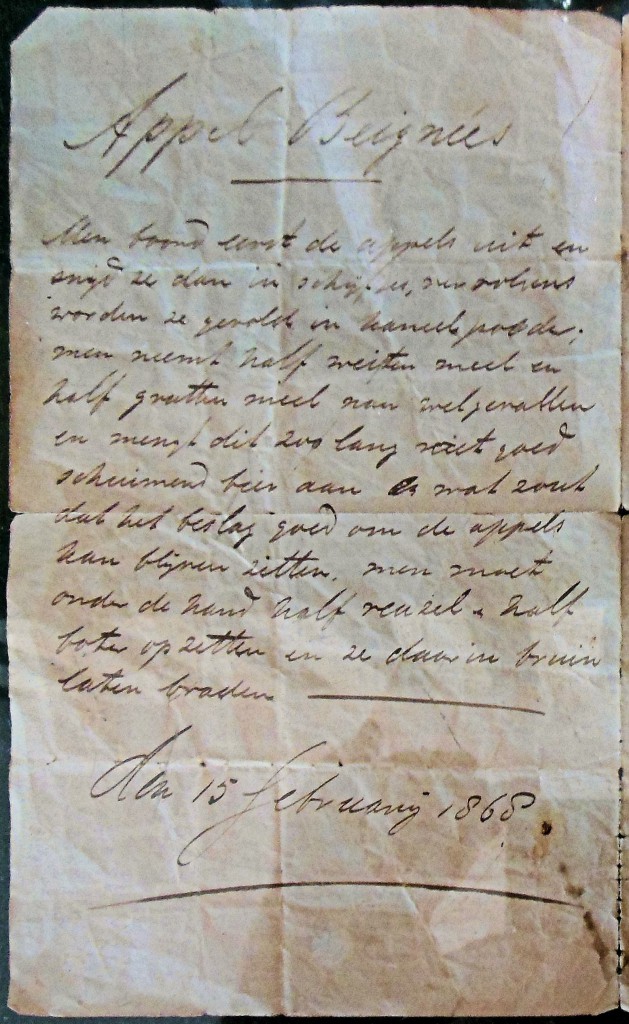 Appel Beignées
Men boord eerst de appels uit en
snijd ze dan in schijfjes, vervolgens
worden ze gerold in kaneel poeder;
men neemt half weiten meel en
half grutten meel naar welgevallen
en mengt dit zoo lang met goed
schuimend bier aan en wat zout
dat het beslag goed om de appels
kan blijven zitten. men moet
onder de hand half reuzel & half
boter opzetten en ze daarin bruin
laten braden
den 15 february 1868.